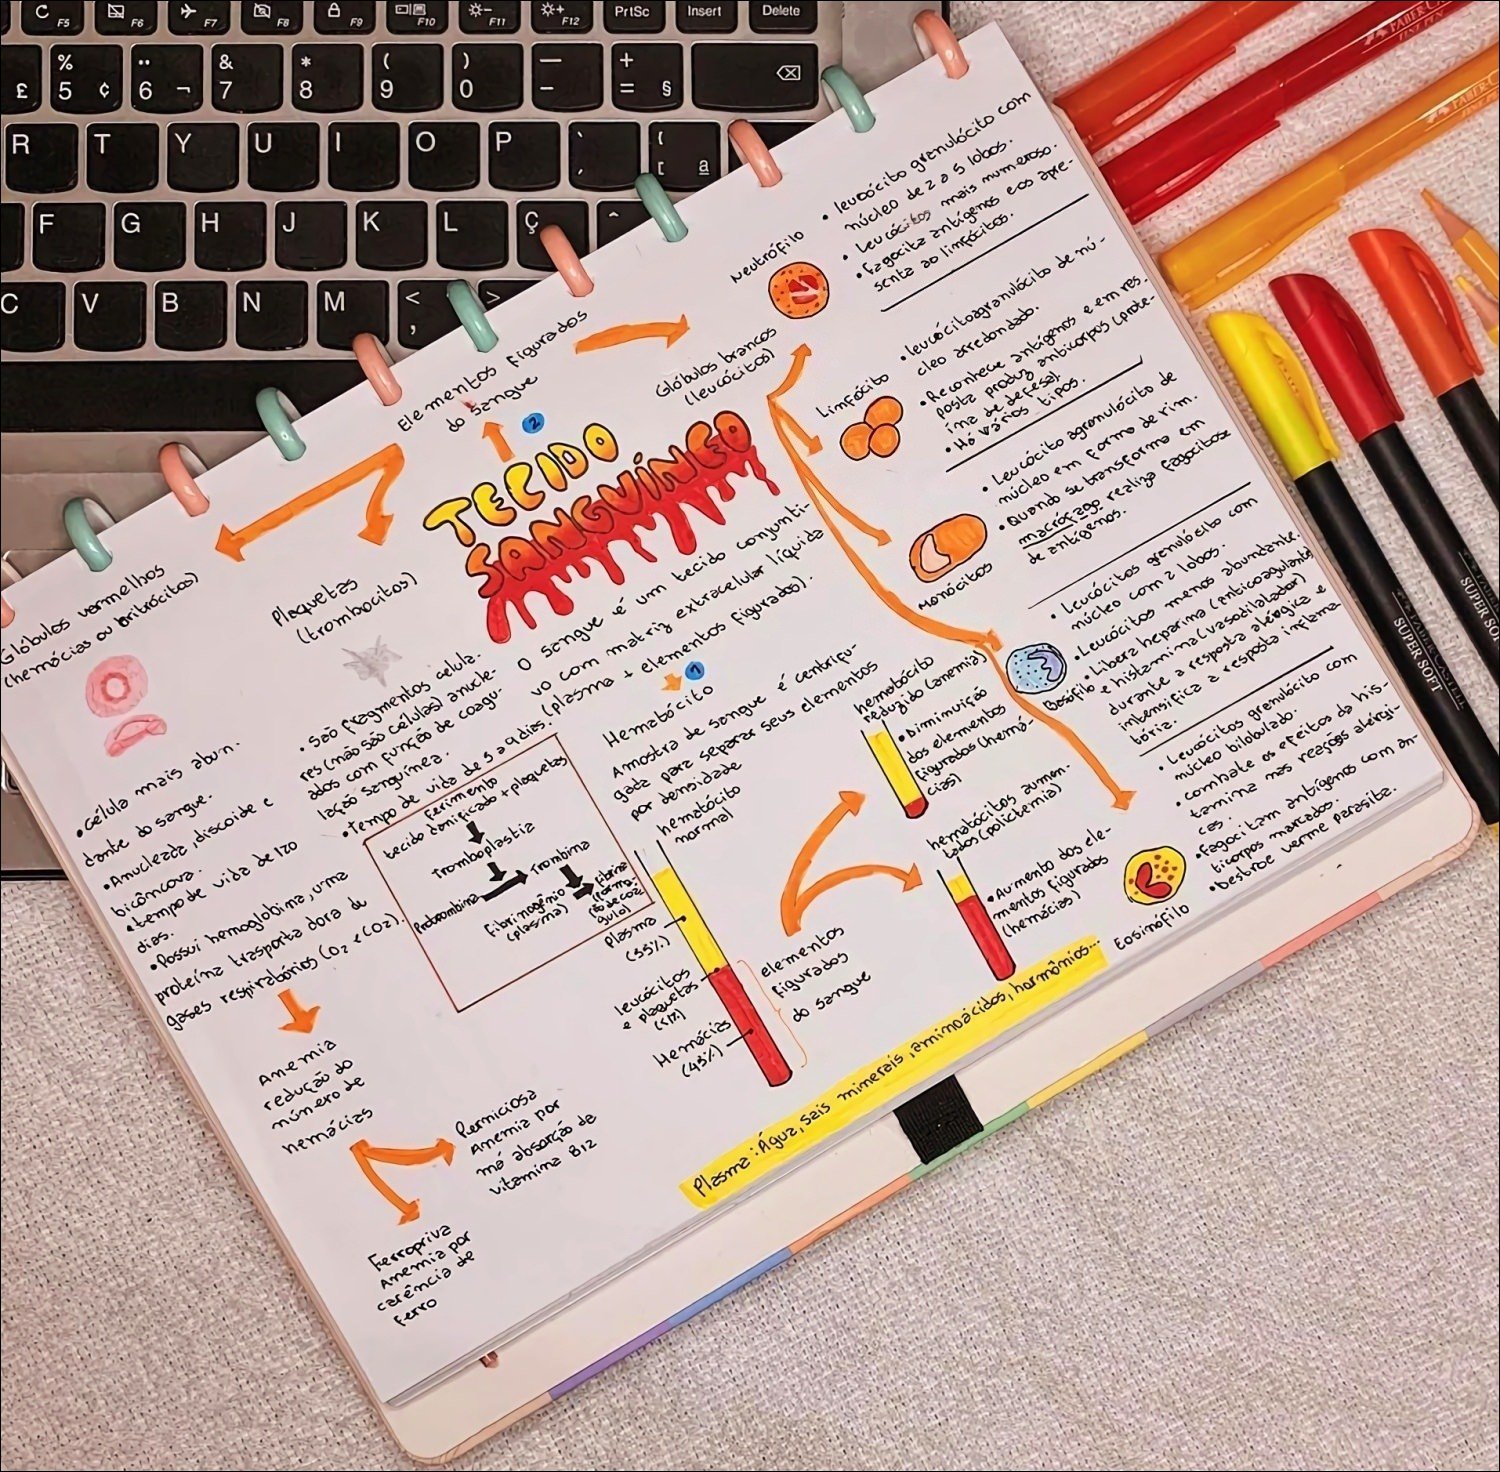 F5
F6
F7
F8
F9
F10
F11
F12
PrtSc
Insert
Delete
£
% 5 ¢
¨ 6 ¬
& 7
* 8
( 9
) 0
— -
+ = §
R T Y U I O P
ª
F G H J K L Ç ^
C V B N M < , >
FABER-CASTELL
FABER-CASTELL
SUPER SOFT
FABER-CASTELL
SUPER SOFT
TECIDO
SANGUÍNEO
O sangue é um tecido conjunti-
vo com matriz extracelular líquida
(plasma + elementos figurados).
2
Elementos figurados
do sangue
Glóbulos vermelhos
(hemácias ou eritrócitos)
• célula mais abun-
dante do sangue.
• Anucleada, discoide e
bicôncava.
• tempo de vida de 120
dias.
• Possui hemoglobina, uma
proteína trasportadora de
gases respiratórios (O2 e CO2).
Anemia
redução do
número de
hemácias
Perniciosa
Anemia por
má absorção da
vitamina B12
Ferropriva
Anemia por
carência de
ferro
Plaquetas
(trombocitos)
• São fragmentos celula-
res (não são células) anucle-
ados com função de coagu-
lação sanguínea.
• Tempo de vida de 5 a 9 dias.
ferimento
tecido danificado + plaquetas
Tromboplastia
Protrombina
Trombina
Fibrinogênio
(plasma)
Fibrina
(forma-
ção de coá
gulo)
1
Hematócito
Amostra de sangue é centrifu-
gada para separar seus elementos
por densidade
hematócito
normal
plasma
(55%)
leucócitos
e plaquetas
(<1%)
Hemácias
(45%)
elementos
figurados
do sangue
hematócito
reduzido (anemia)
• Diminuição
dos elementos
figurados (hemá-
cias)
hematócitos aumen-
tados (policitemia)
• Aumento dos ele-
mentos figurados
(hemácias)
Plasma: Água, sais minerais, aminoácidos, hormônios...
Glóbulos brancos
(leucócitos)
Neutrófilo
• leucócito granulócito com
núcleo de 2 a 5 lobos.
• Leucócitos mais numeroso.
• Fagocita antígenos e os apre-
senta ao linfócitos.
Limfócito
• leucócito agranulócito de nú-
cleo arredondado.
• Reconhece antígenos e em res
posta produz anticorpos (prote-
ína de defesa).
• Há vários tipos.
Monócitos
• Leucócito agranulócito de
núcleo em forma de rim.
• Quando se transforma em
macrófago realiza fagocitose
de antígenos.
Basófilo
• Leucócitos granulócito com
núcleo com 2 lobos.
• Leucócitos menos abundante.
• Libera heparina (anticoagulante)
e histamina (vasodilatador)
durante a resposta alérgica e
intensifica a resposta inflama-
tória.
Eosinófilo
• Leucócitos granulócito com
núcleo bilobulado.
• combate os efeitos da his-
tamina nas reações alérgi-
cas.
• Fagocitam antígenos com an-
ticorpos marcados.
• Destroe verme parasita.